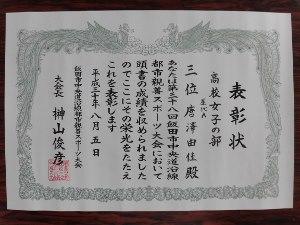 表彰状
高校女子の部
三位 唐澤由佳殿
あなたは第三十八回飯田市中央道沿線
都市親善スポーツ大会において
頭書の成績を収められました
のでここにその栄光をたたえ
これを表彰します
平成三十年八月五日
飯田市中央道沿線都市親善スポーツ大会
大会長 榊山俊彦